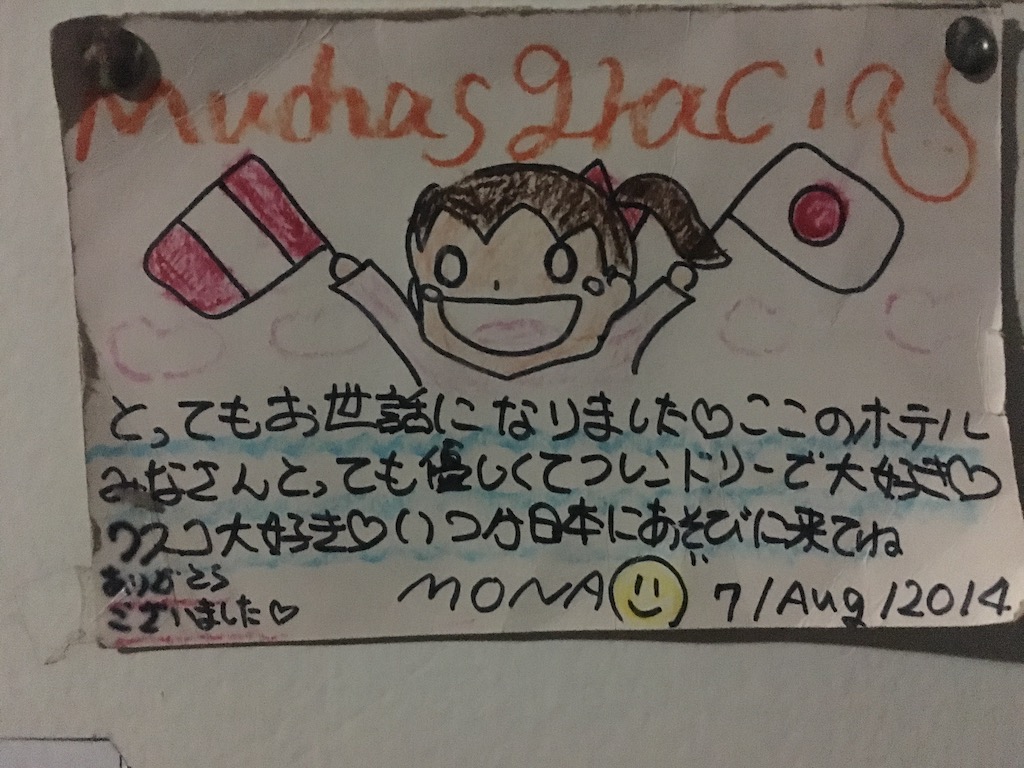 Muchas gracias
とってもお世話になりました♡ここのホテル
みなさんとっても優しくてフレンドリーで大好き♡
クスコ大好き♡いつか日本にあそびに来てね
ありがとう
ございました♡
MONA 7/Aug/2014